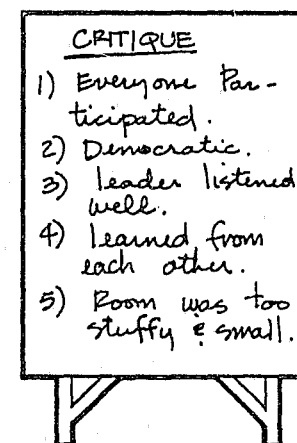 CRITIQUE
1) Everyone Par-
ticipated.
2) Democratic.
3) leader listened
well.
4) learned from
each other.
5) Room was too
stuffy & small.